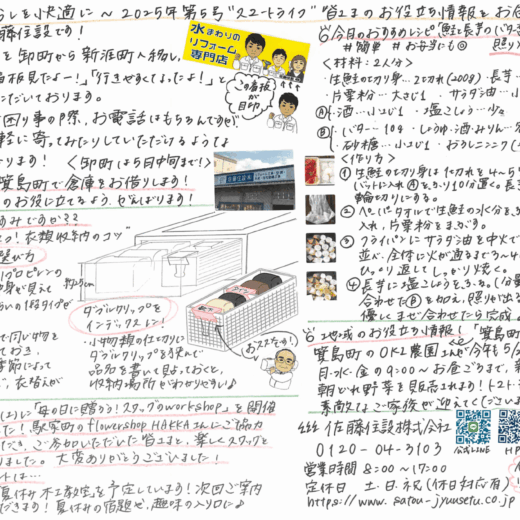 らしを快適に～2025年第5号"スタートライフ"
藤住設です！
を卸町から新涯町へ移し、
看板見たよー！」「行きやすくなったよ！」と
ただいております。
困り事の際、お電話はもちろんですが
軽に寄ってみたりしていただけるような
ります！ 〈卸町は5月中旬まで！〉
箕島町で倉庫をお借りします！
のお役に立てるよう、がんばります！
水まわりの
リフォーム
専門店
この看板
が
目印
みですか??
つ！衣類収納のコツ"
選び方
プロピレンの
中身が見え
らいの1段タイプが
ダブルクリップを
インデックスに！
・小物類の仕切りに
ダブルクリップを挟んで
品名を書いて見えておくと、
収納場所がわかりやすい♪
おススメです！
で同じ物を
ておき、
季節によって
で、衣替えが
に「母の日に贈ろう！スタッグのworkshop」を開催
した！駅家町のflowershop HAKKAさんにご協力
だき、ご参加いただいた皆さまと、楽しくスタッグを
りました。大変ありがとうございました！
トは…
夏休み木工教室」を予定しています！次回ご案内
できます！夏休みの宿題や、趣味の入り口に♪
皆さまのお役立ち情報をお届
今月のおすすめレシピ「鮭と長芋のバター
#簡単 #お弁当にも◎
照り
〈材料：2人分〉
・生鮭の切り身…2切れ(200g)・長芋
・片栗粉…大さじ1 ・サラダ油…小
Ⓐ・酒…小さじ1 ・塩こしょう…少々
Ⓑ・バター…10g ・しょうゆ・酒・みりん…各
・砂糖…小さじ1 ・おろしニンニク
〈作り方〉
① 生鮭の切り身は1切れを4～5
バットに入れⒶをふり10分置く。長
輪切りにする。
② ペーパータオルで生鮭の水分をふ
入れ、片栗粉をまぶす。
③ フライパンにサラダ油を中火で
並べ、全体に火が通るまで3～4
ひっくり返してしっかり焼く。
④ 長芋に塩こしょうをふる。
合わせたⒷを加え、照りが出る
優しくまぜ合わせたら完成♪
地域のお役立ち情報！「箕島
箕島町のOKL農園さんで今年も5/
月・水・金の9:00～お昼ごろまで、新
朝どれ野菜を見られます！トマト・
素敵なご家族が迎えてくださいま
佐藤住設株式会社
0120-04-3103
公式LINE
HP
営業時間 8:00～17:00
定休日 土・日・祝(休日対応有)
https://www.satou-jyuusetu.co